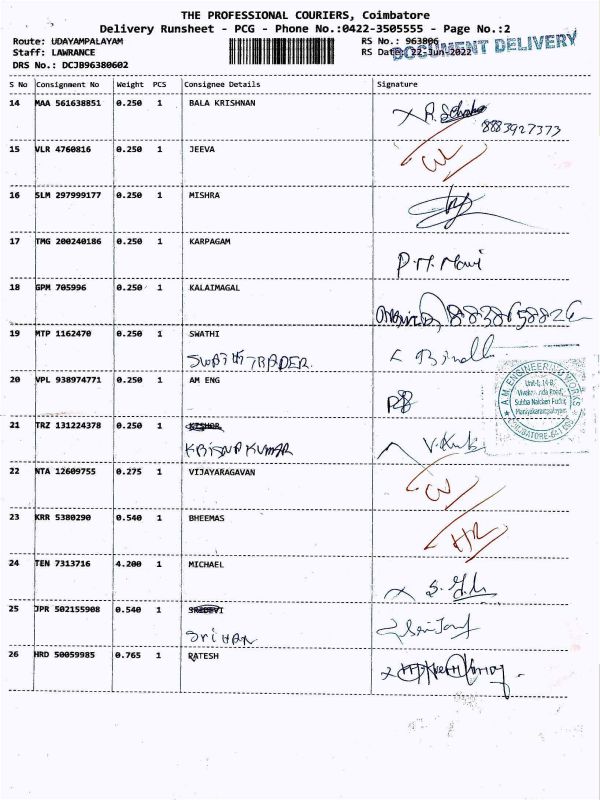 THE PROFESSIONAL COURIERS, Coimbatore
Delivery Runsheet - PCG - Phone No.:0422-3505555 - Page No.:2
Route: UDAYAMPALAYAM RS No.: 963806
Staff: LAWRANCE RS Date: 22-Jun-2022
DOCUMENT DELIVERY
DRS No.: DCJB96380602
S No Consignment No Weight PCS Consignee Details Signature
14 MAA 561638851 0.250 1 BALA KRISHNAN
8883927373
15 VLR 4760816 0.250 1 JEEVA
16 SLM 297999177 0.250 1 MISHRA
17 TMG 200240186 0.250 1 KARPAGAM
18 GPM 705996 0.250 1 KALAIMAGAL
19 MTP 1162470 0.250 1 SWATHI
SWATHI TRADER.
20 VPL 938974771 0.250 1 AM ENG
A.M. ENGINEERING WORKS
Maniyakarampalayam
COIMBATORE-641 006
21 TRZ 131224378 0.250 1 KISHOR
KRISNA KUMAR
22 NTA 12609755 0.275 1 VIJAYARAGAVAN
23 KRR 5380290 0.540 1 BHEEMAS
24 TEN 7313716 4.200 1 MICHAEL
25 JPR 502155908 0.540 1 SRIDEVI
SRIHAN
26 HRD 50059985 0.765 1 RATESH